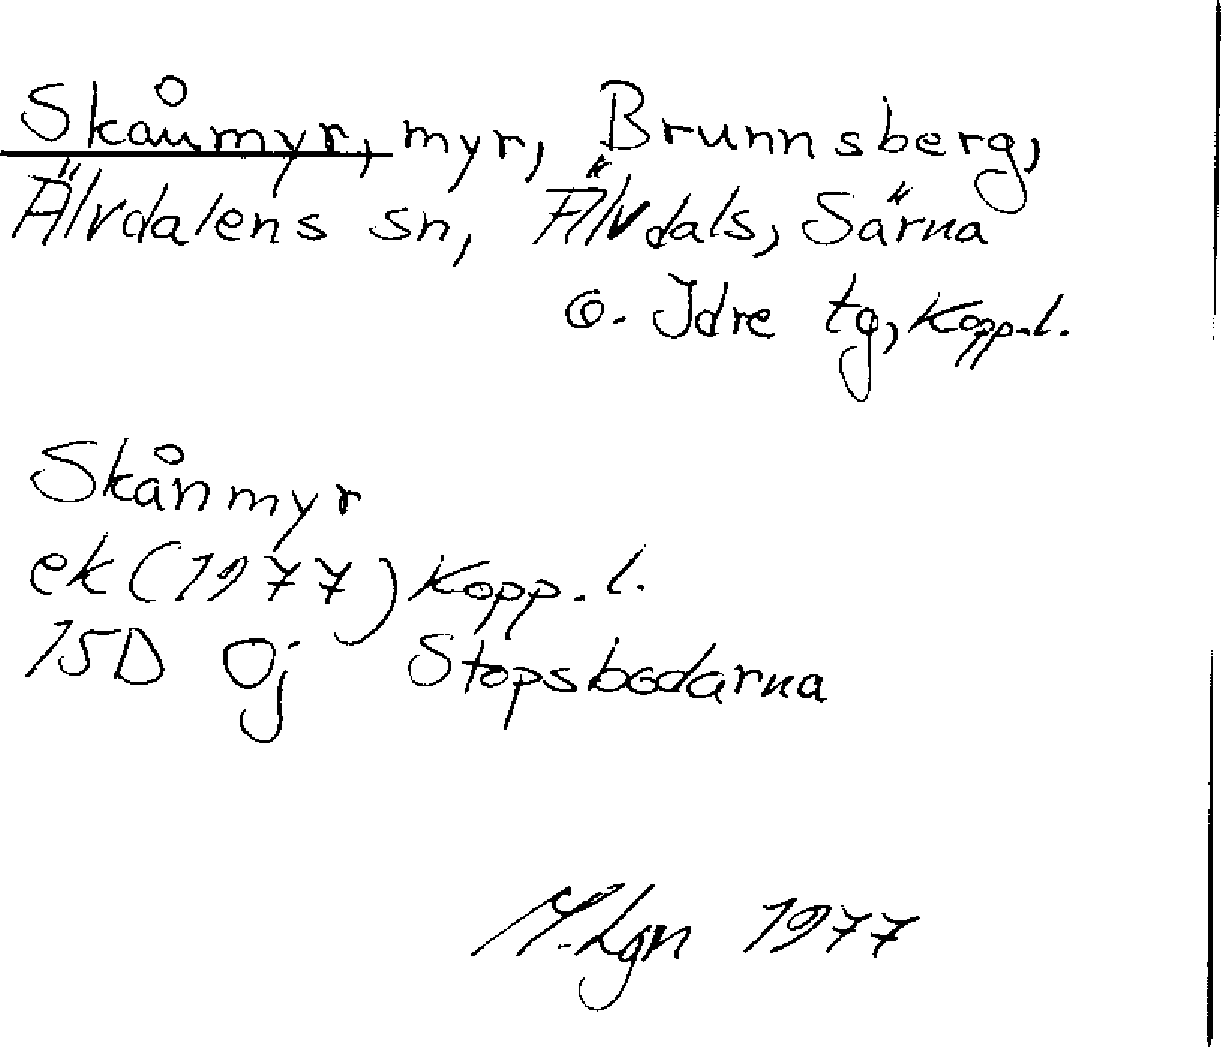 Skånmyr, myr, Brunnsberg,
Älvdalens sn, Älvdals, Särna
o. Idre tg, Kopp.l.
Skånmyr
ek (1977) Kopp.l.
15D 0j Stopsbodarna
M.Lgn 1977